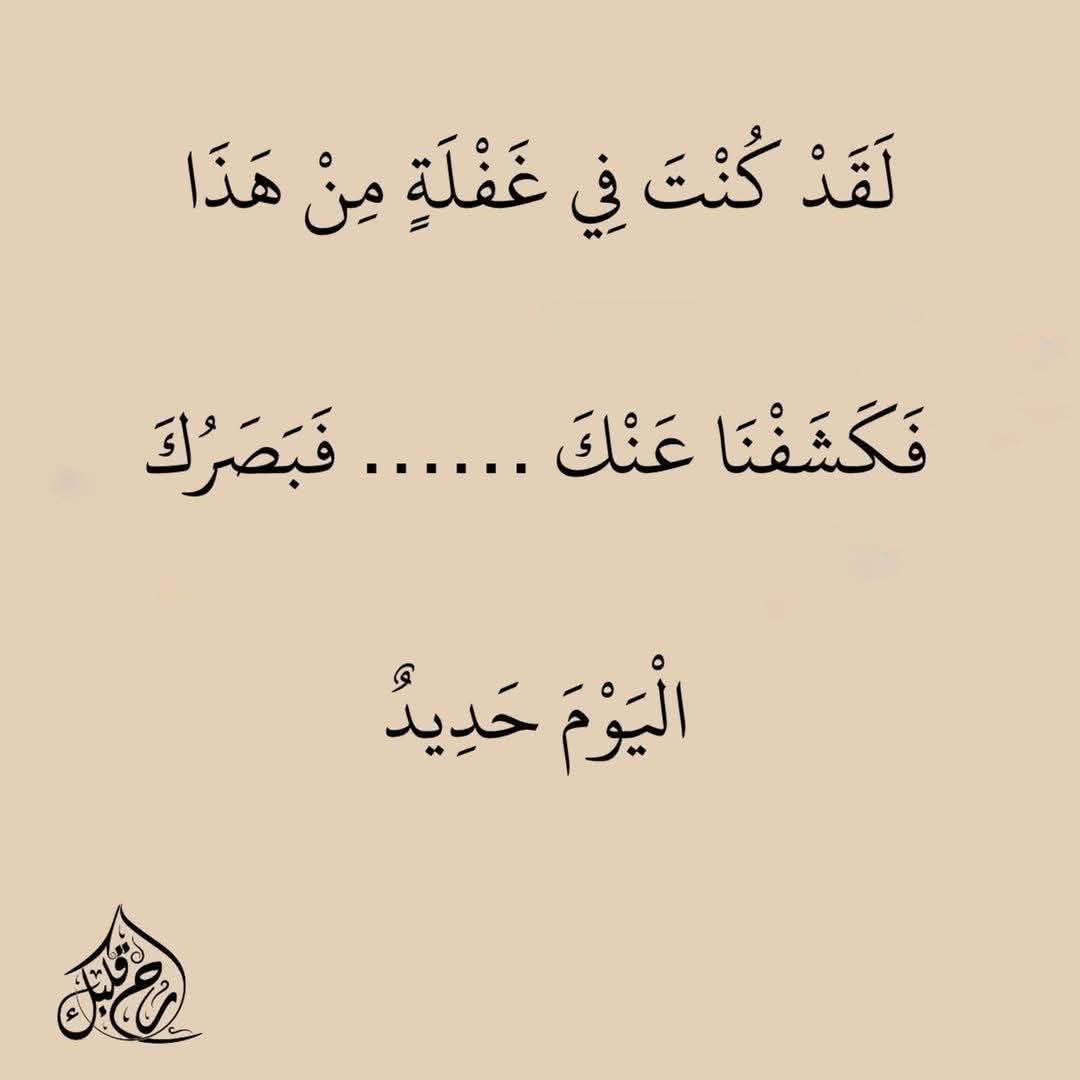 لَقَدْ كُنْتَ فِي غَفْلَةٍ مِنْ هَذَا
فَكَشَفْنَا عَنْكَ ...... فَبَصَرُكَ
الْيَوْمَ حَدِيدٌ
ارح قلبك